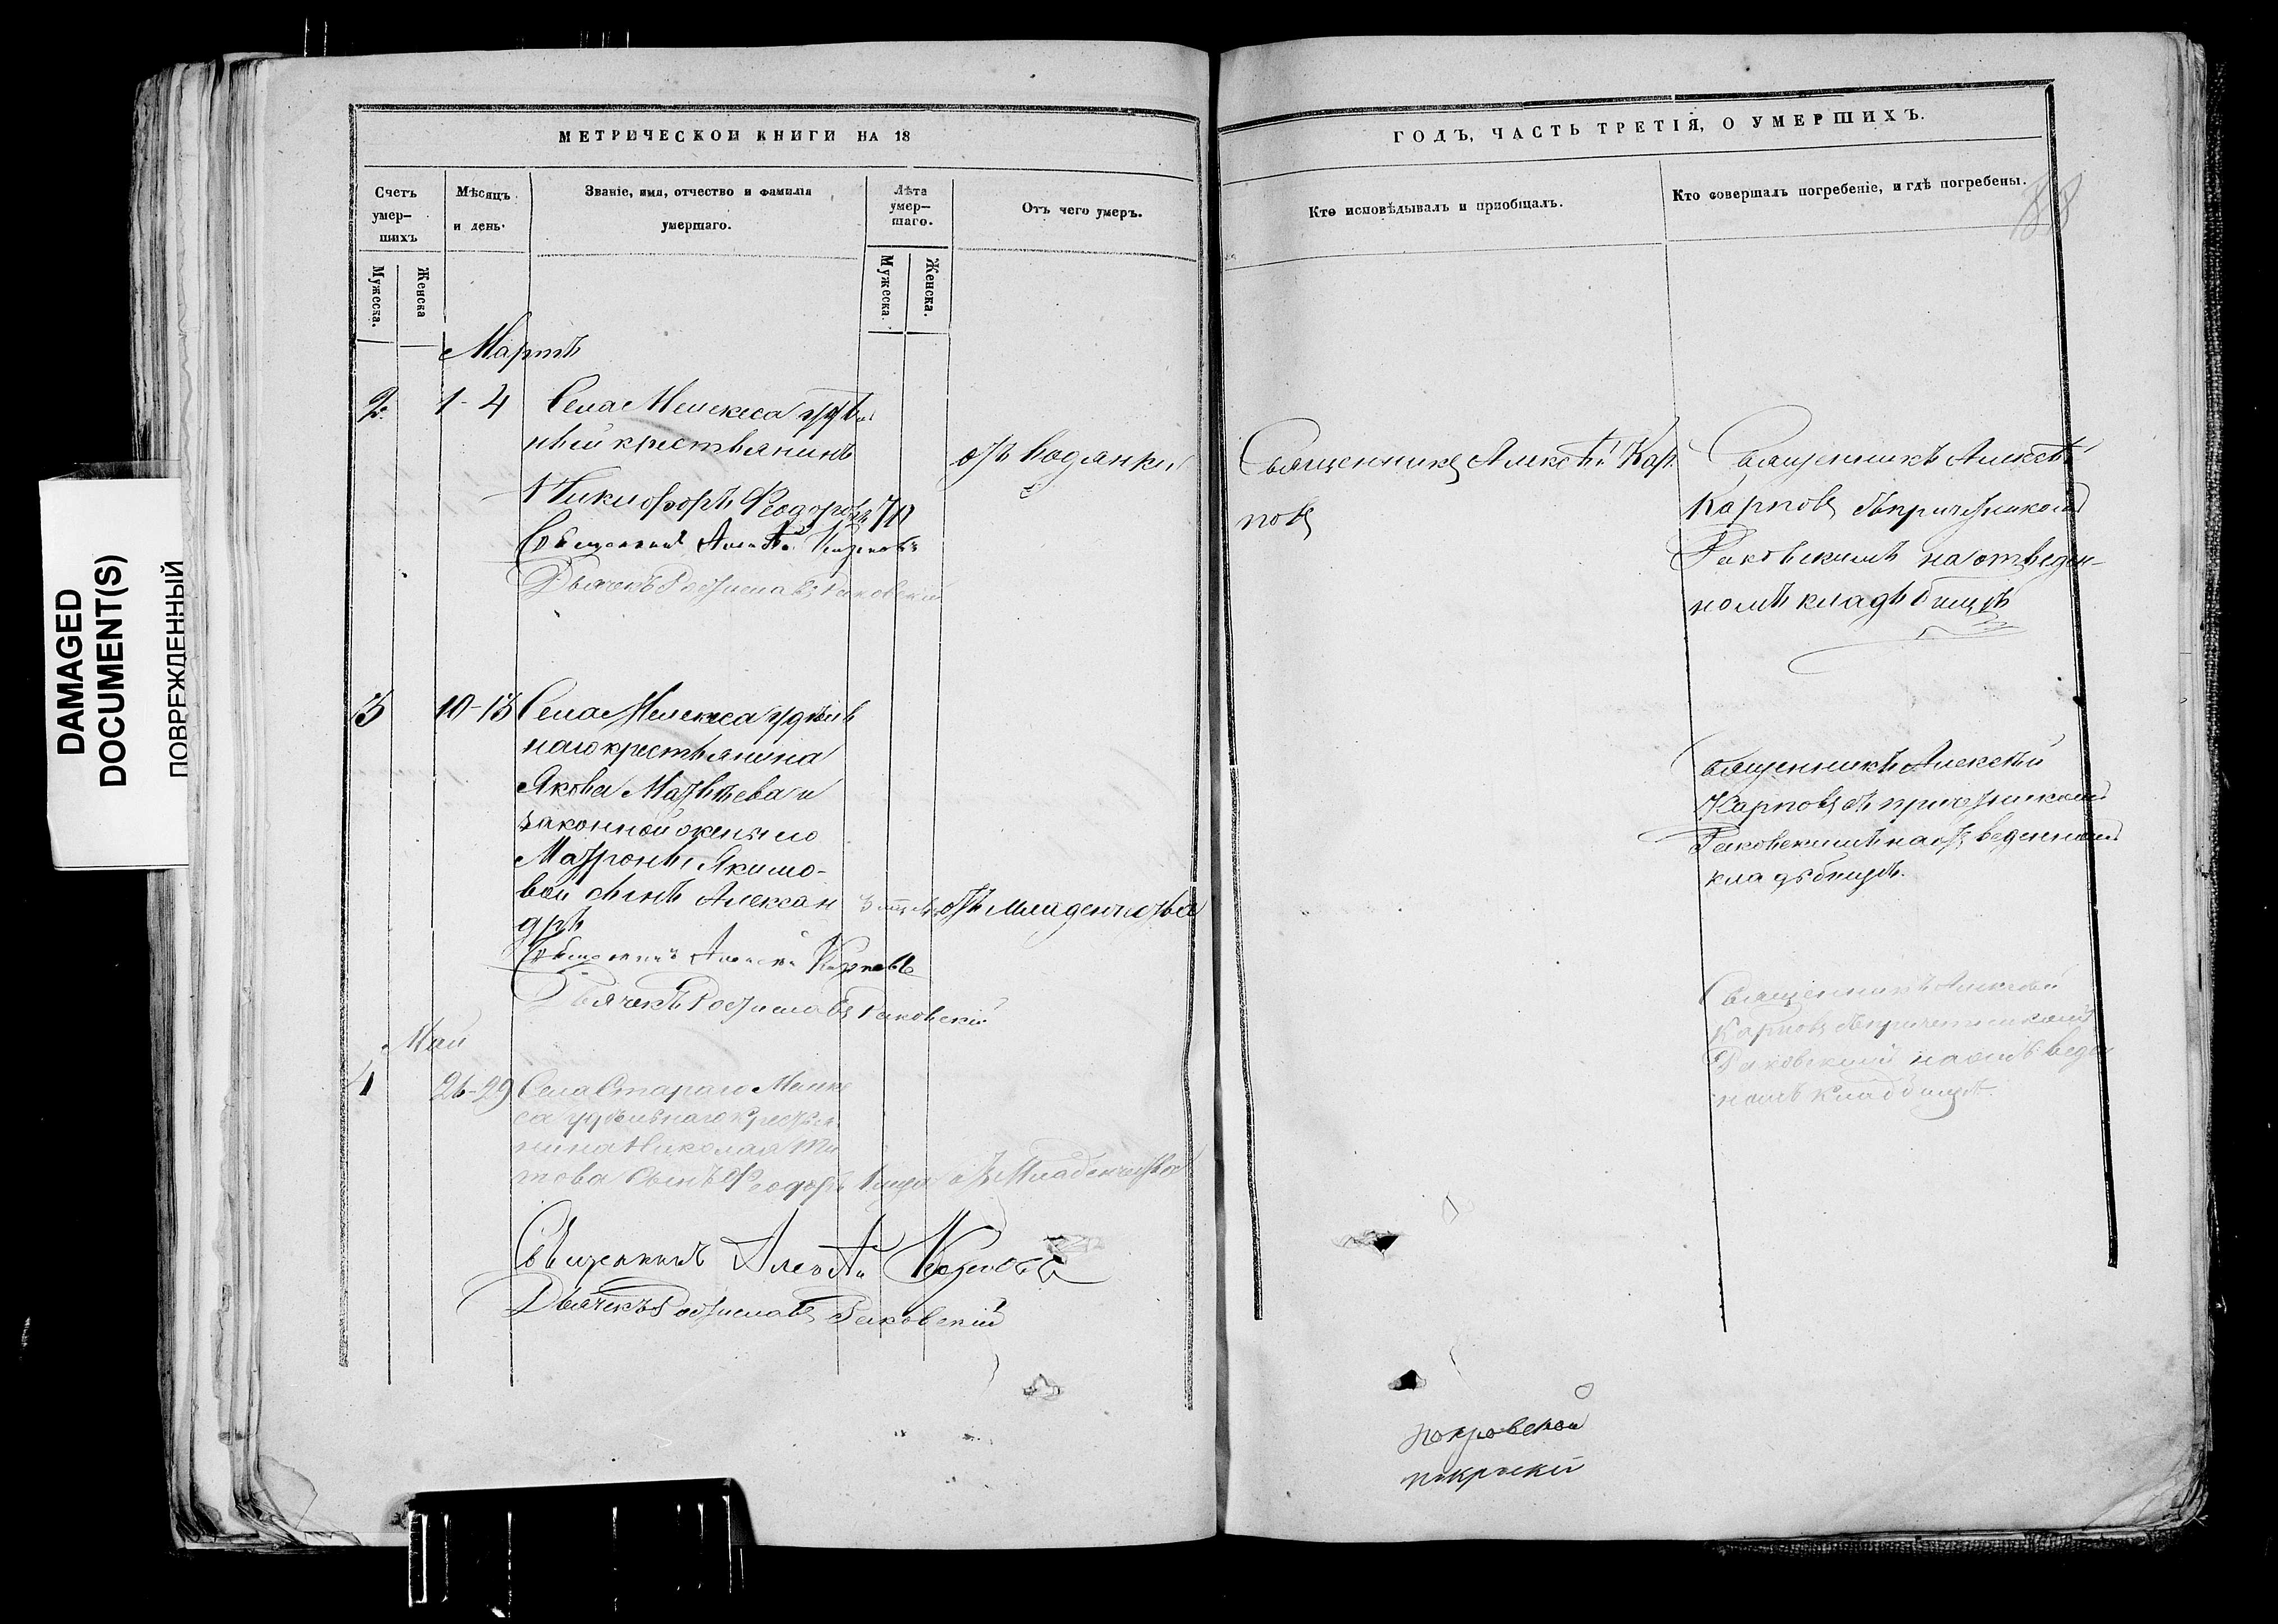 DAMAGED
DOCUMENT(S)
ПОВРЕЖДЕННЫЙ
МЕТРИЧЕСКОЙ КНИГИ НА 18
Счетъ умер-шихъ
Мужеска.
Женска
Мѣсяцъ и день.
Званіе, имя, отчество и фамилія умершаго.
Лѣта умер-шаго.
Мужеска.
Женска.
Отъ чего умеръ.
Мартъ
2. 1-4 Села Мелекеса удѣль
ный крестьянинъ
Никифоръ Феодоровъ 70 отъ водянки
Священникъ Алексѣй Карповъ
Дьячекъ Ростиславъ Раковскій
3 10-13 Села Мелекеса удѣль
наго крестьянина
Якова Матвѣева и
законной жены его
Матроны Якимо-
вой сынъ Алексан
дръ отъ младенчества
Священникъ Алексѣй Карповъ
Дьячекъ Ростиславъ Раковскій
Май
4 26-29 Села Стараго Мелеке
са удѣльнаго крестья
нина Николая Ти
това сынъ Феодоръ отъ младенчества
Священникъ Алексѣй Карповъ
Дьячекъ Ростиславъ Раковскій
ГОДЪ, ЧАСТЬ ТРЕТІЯ, О УМЕРШИХЪ.
Кто исповѣдывалъ и пріобщалъ.
Кто совершалъ погребеніе, и гдѣ погребены.
188
Священникъ Алексѣй Кар
повъ
Священникъ Алексѣй
Карповъ съ причетникомъ
Раковскимъ на отведен-
номъ кладбищѣ
Священникъ Алексѣй
Карповъ съ причетникомъ
Раковскимъ на отведенномъ
кладбищѣ.
Священникъ Алексѣй
Карповъ съ причетникомъ
Раковскимъ на отведен
номъ кладбищѣ.
покровской